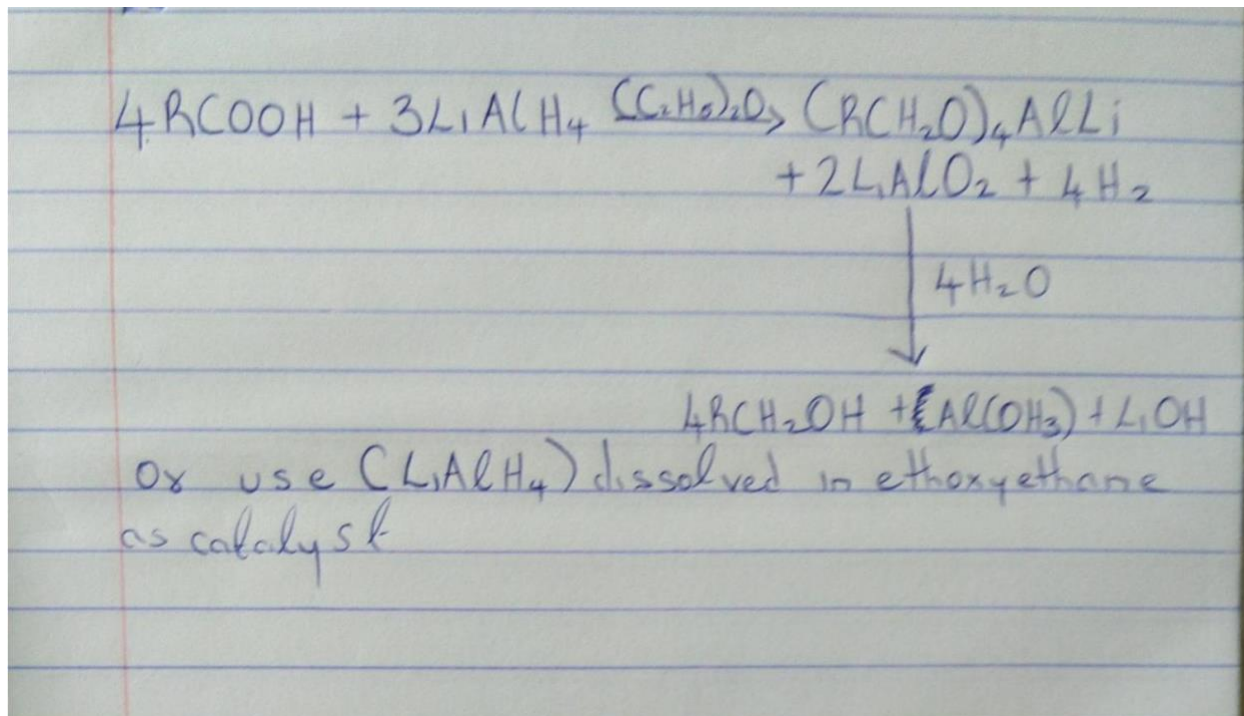 4RCOOH + 3LiAlH₄ (C₂H₅)₂O→ (RCH₂O)₄AlLi
+ 2LiAlO₂ + 4H₂
4H₂O
4RCH₂OH + Al(OH₃) + LiOH
Or use (LiAlH₄) dissolved in ethoxyethane
as catalyst